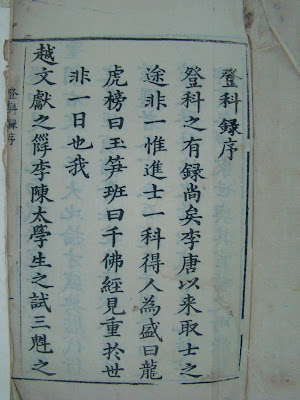 登科录序
登科之有録尚矣李唐以来取士之
途非一惟進士一科得人為盛曰龍
虎榜曰玉笋班曰千佛經見重於世
非一日也我
越文獻之俘李陳太學生之試三魁之
登科錄序